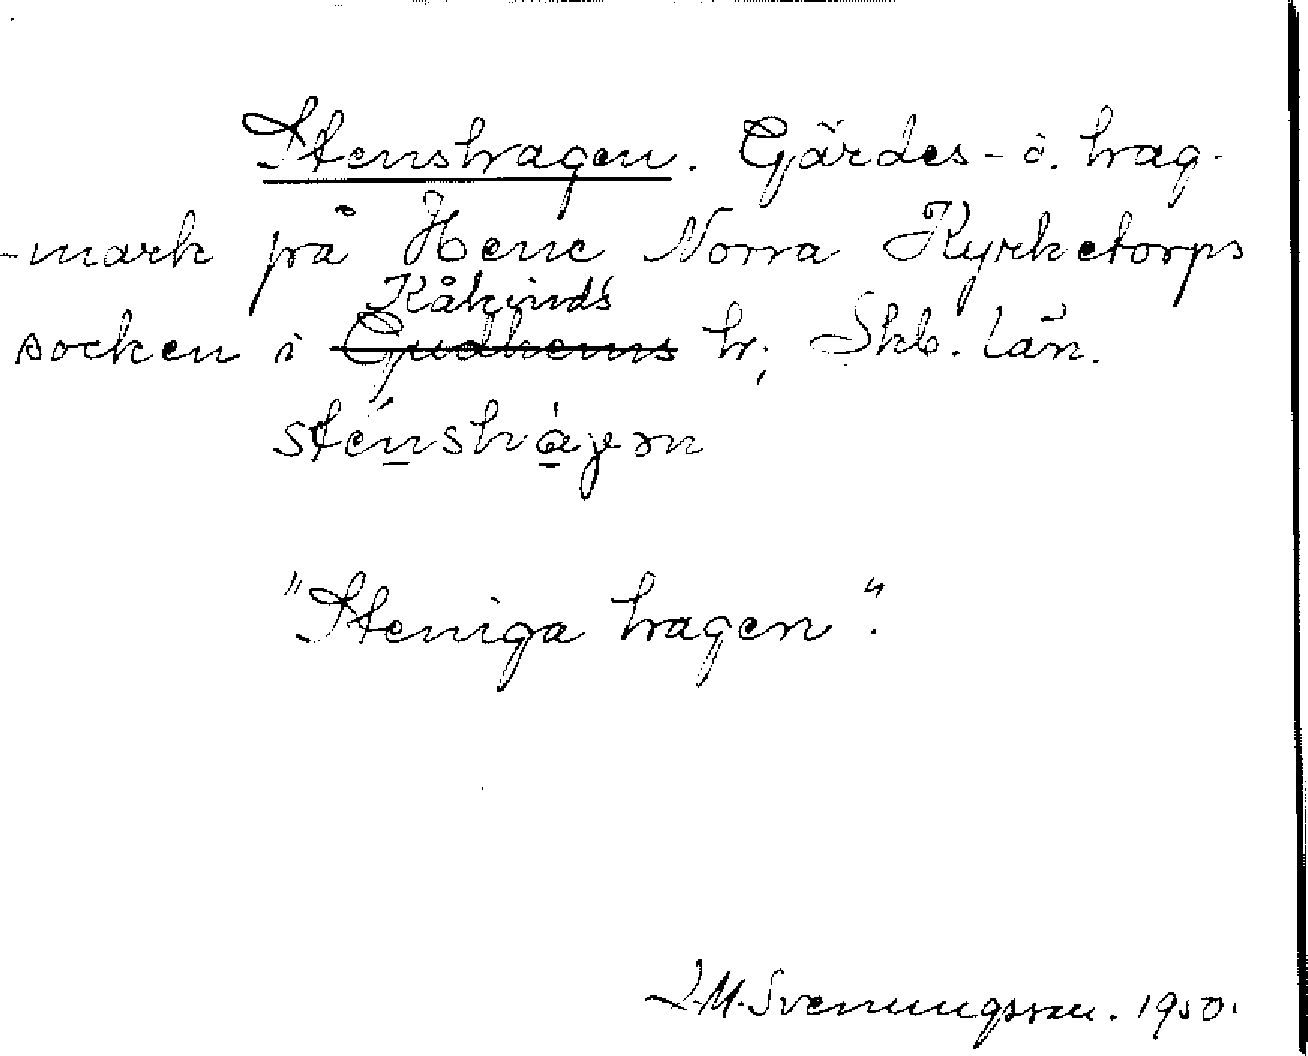 Stenshagen. Gärdes- o. hag-
-mark på Hene Norra Kyrketorps
Kåkinds
socken i Gudhems hr, Skb. län.
sténshàgen
"Steniga hagen".
J. M. Svenungsson. 1950.